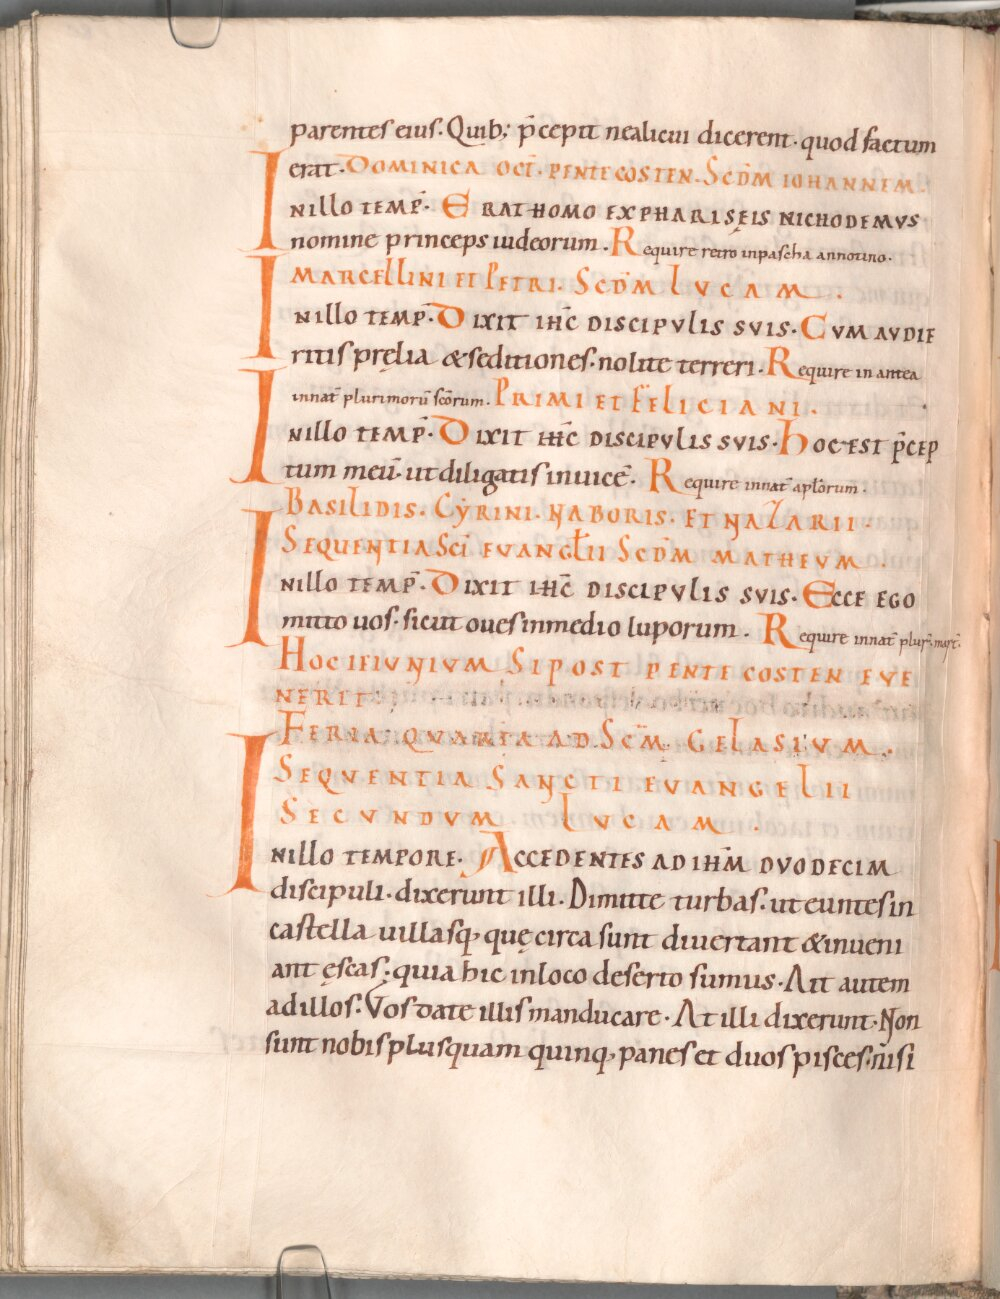 parentes eius. Quib; p̄cepit ne alicui dicerent. quod factum
erat. DOMINICA OCT̄. PENTECOSTEN. SCD̄M IOHANNEM.
INILLO TEMP̄. ERAT HOMO EX PHARISĘIS NICHODEMVS
nomine princeps iudeorum. Require retro inpascha annotino.
MARCELLINI ET PETRI. SCD̄M LVCAM.
INILLO TEMP̄. DIXIT IHC̄ DISCIPVLIS SVIS. CVM AVDIE
ritis pręlia & seditiones. nolite terreri. Require in antea
innat̄ plurimorū scōrum. PRIMI ET FELICIANI.
INILLO TEMP̄. DIXIT IHC̄ DISCIPVLIS SVIS. HOC EST P̄CEP
tum meū. ut diligatis inuicē. Require innat̄ aplōrum.
BASILIDIS. CYRINI. NABORIS. ET NAZARII.
SEQUENTIA SCĪ EVANGLII SCD̄M MATHEVM.
INILLO TEMP̄. DIXIT IHC̄ DISCIPVLIS SVIS. ECCE EGO
mitto uos. sicut oues inmedio luporum. Require innat̄ plur̄. mart̄.
HOC IEIVNIVM SI POST PENTECOSTEN EVE
NERIT
FERIA QVARTA AD SCM̄ GELASIVM.
SEQVENTIA SANCTI EVANGELII
SECVNDVM LVCAM.
INILLO TEMPORE. ACCEDENTES AD IHM̄ DVODECIM
discipuli. dixerunt illi. Dimitte turbas. ut euntes in
castella uillasq, quę circa sunt diuertant & inueni
ant ęscas; quia hic inloco deserto sumus. Ait autem
ad illos. Vos date illis manducare. At illi dixerunt. Non
sunt nobis plus quam quinq, panes et duos pisces. nisi